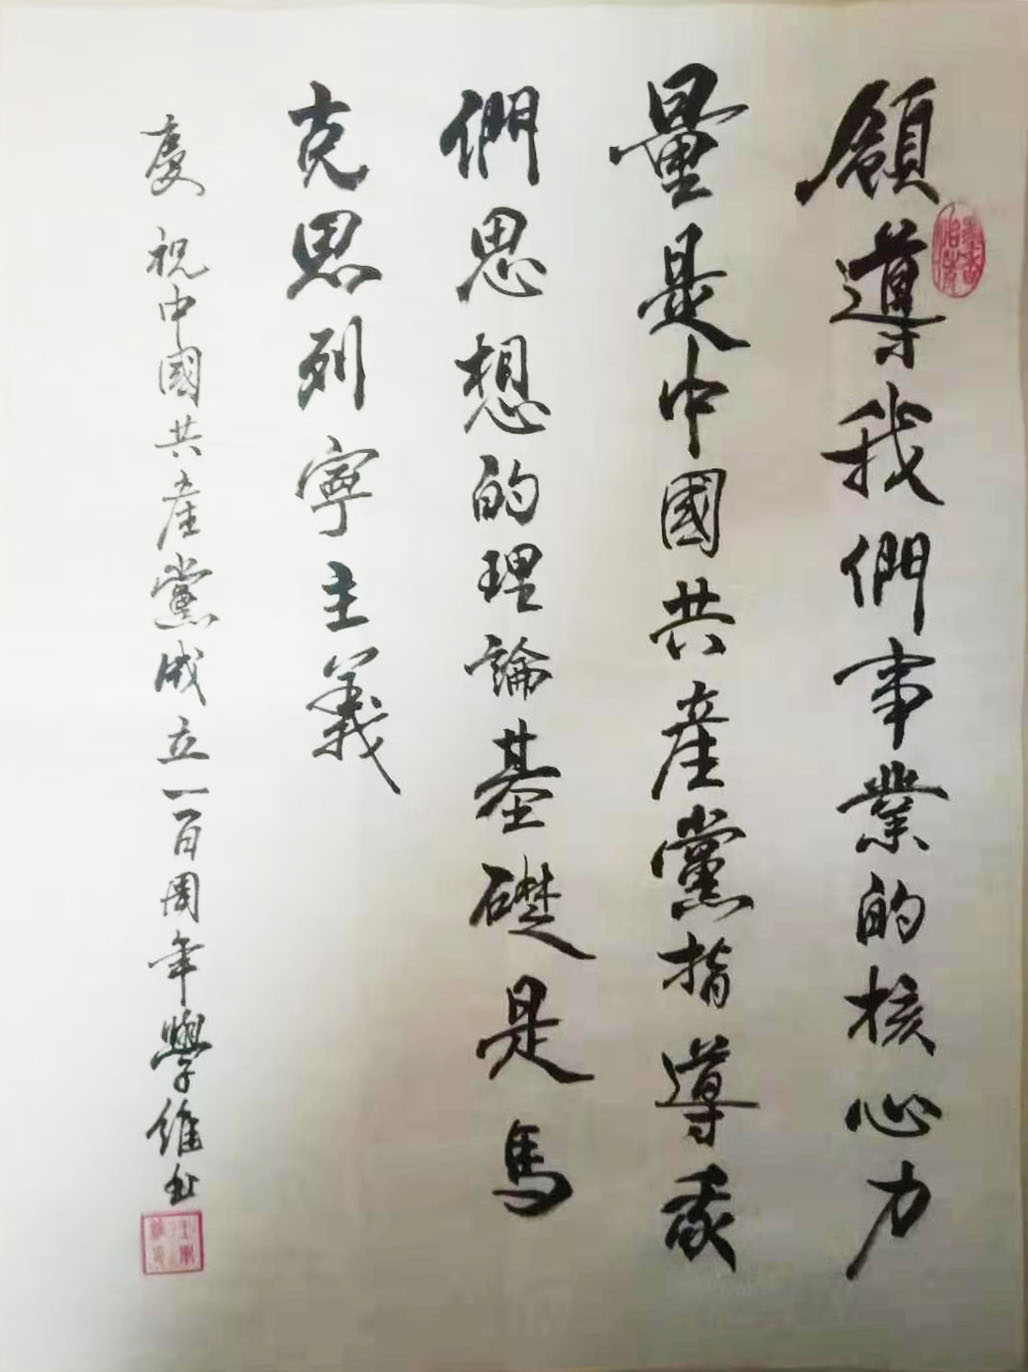 領導我們事業的核心力
量是中國共產黨指導我
們思想的理論基礎是馬
克思列寧主義
慶祝中國共產黨成立一百周年學維書